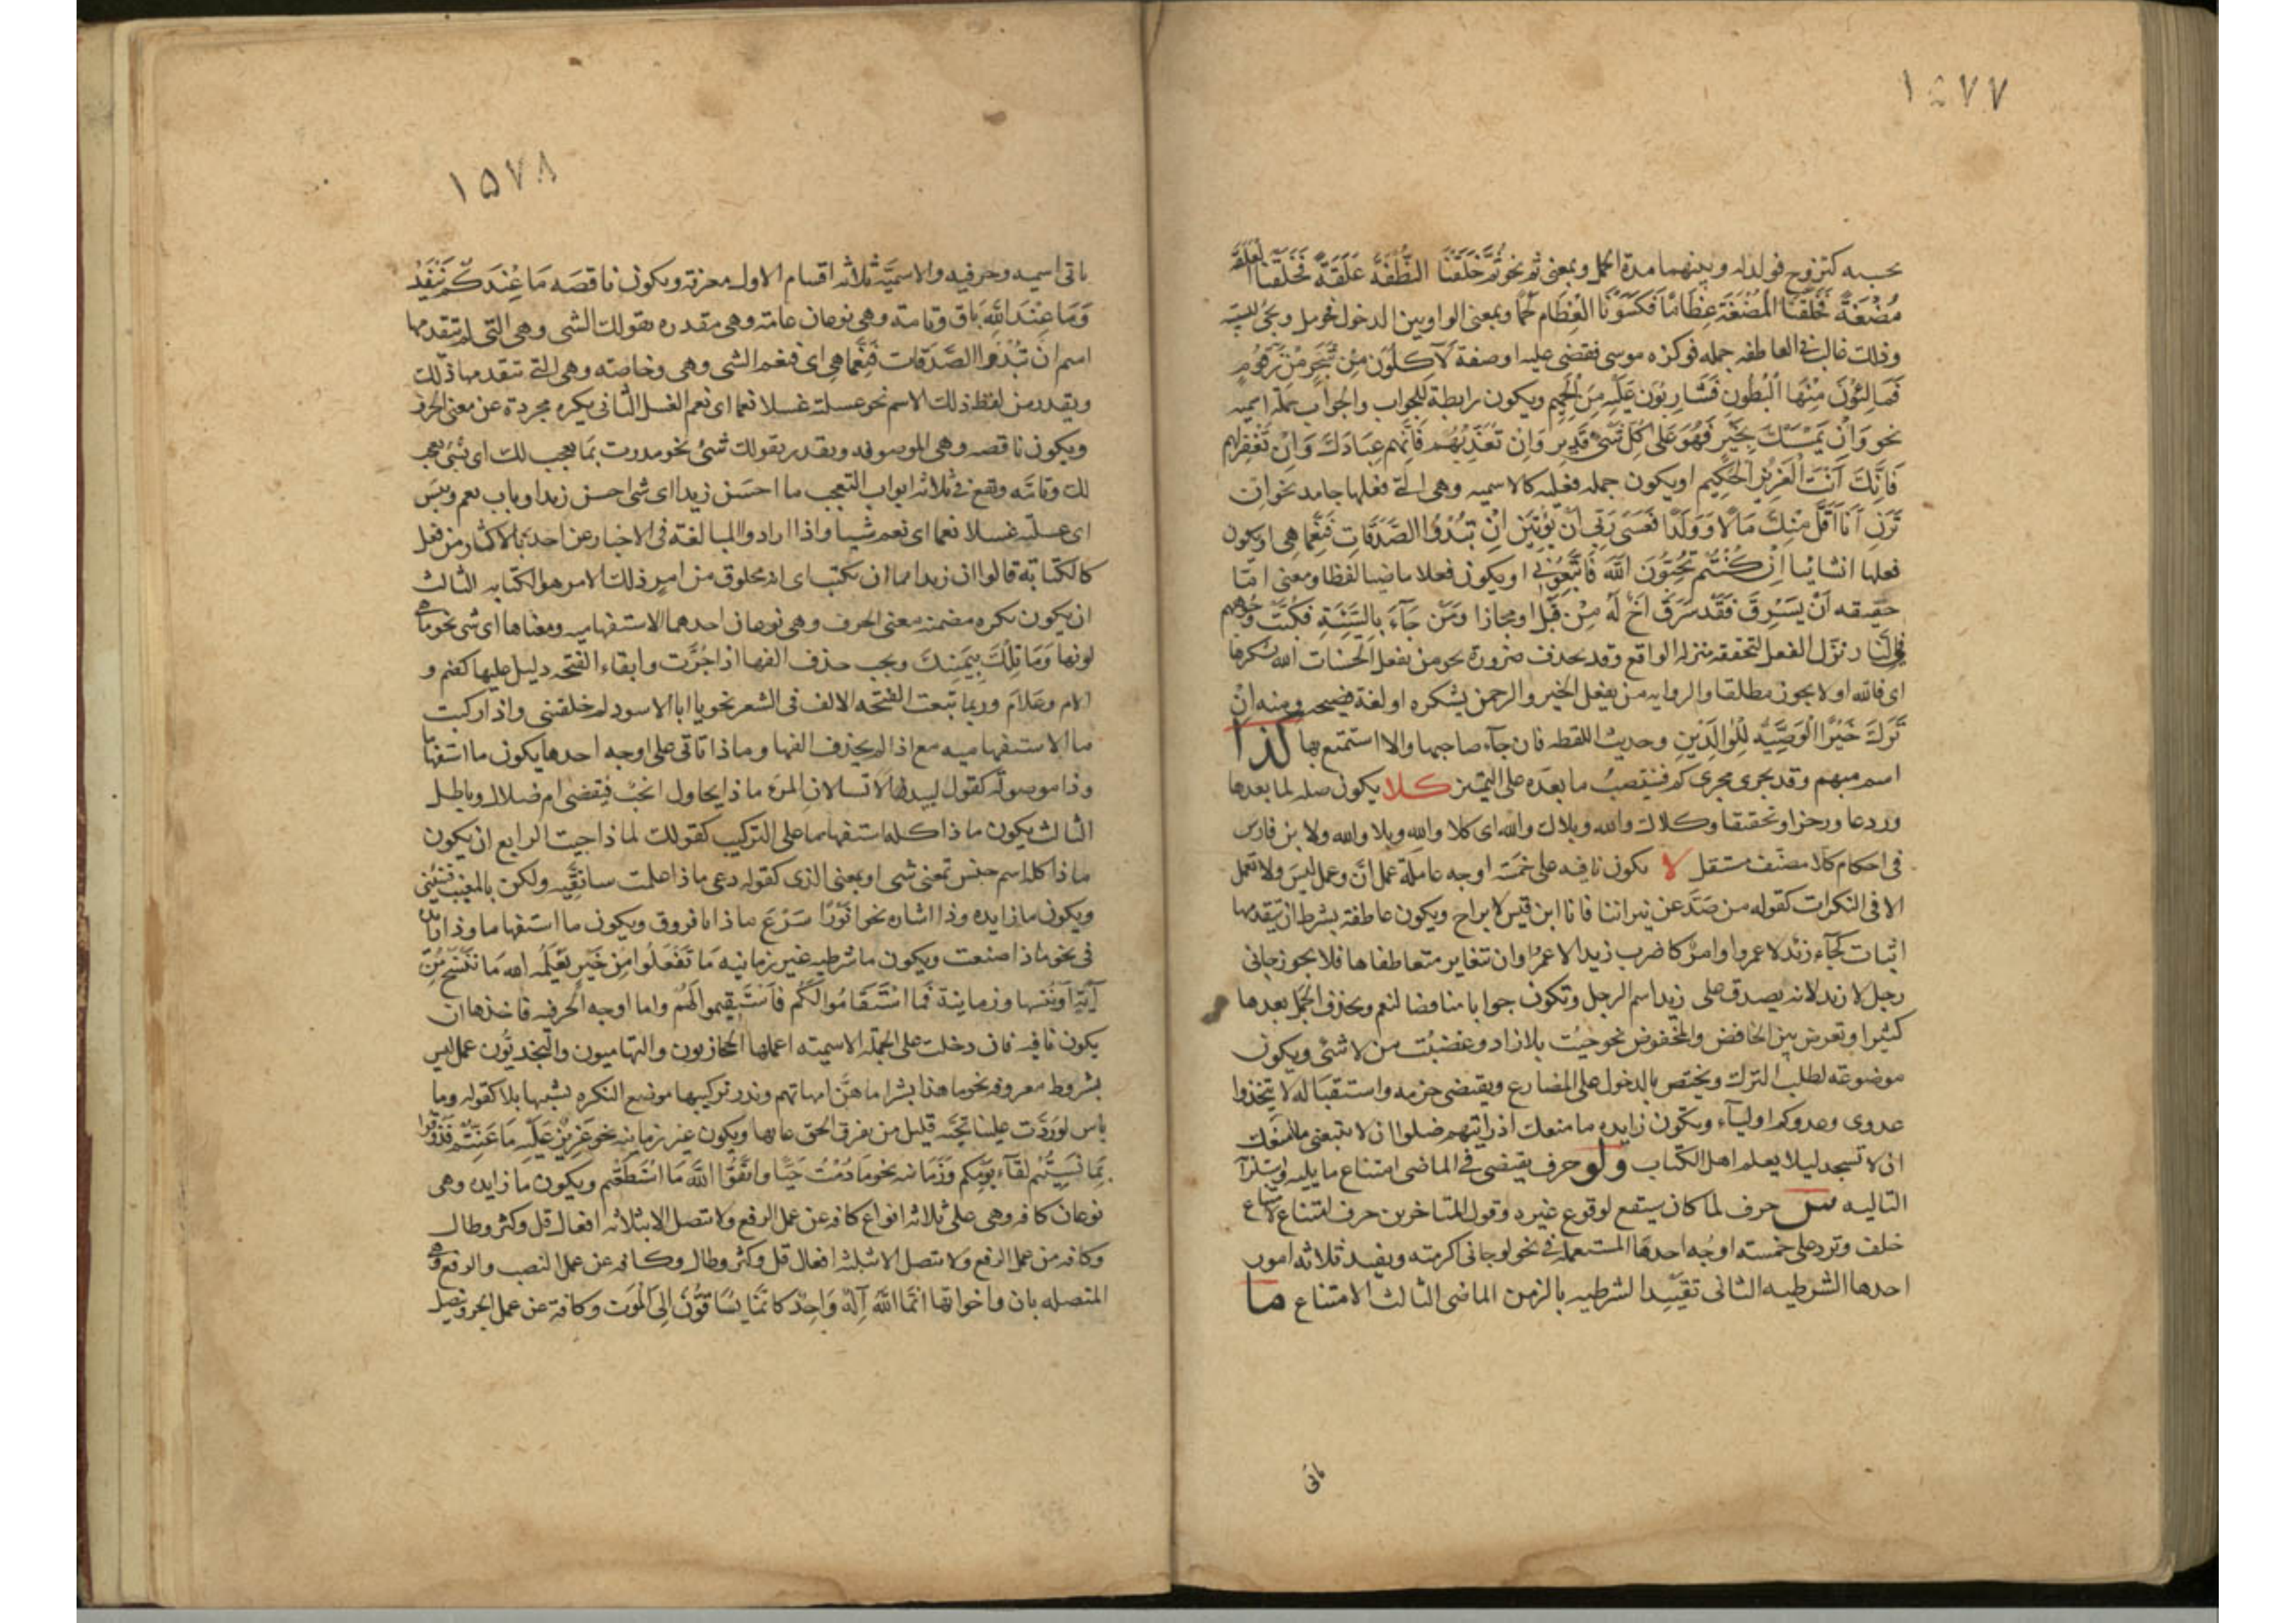 ١٥٧٧
بحسبه كتزوج فولد له وبينهما مدة الحمل وبمعنى ثم نحو ثُمَّ خَلَقْنَا النُّطْفَةَ عَلَقَةً فَخَلَقْنَا العَلَقَة
مُضْغَةً فَخَلَقْنَا الْمُضْغَةَ عِظَامًا فَكَسَوْنَا الْعِظَامَ لَحْمًا وبمعنى الواو بين الدخول فحومل ويجئ للسببيه
وذلك غالب في العاطفه جمله فوكزه موسى فقضى عليه او صفة لَآكِلُونَ مِنْ شَجَرٍ مِنْ زَقُّومٍ
فَمَالِئُونَ مِنْهَا الْبُطُونَ فَشَارِبُونَ عَلَيْهِ مِنَ الْحَمِيمِ ويكون رابطة للجواب والجواب جملة اسميه
نحو وَاِنْ يَمْسَسْكَ بِخَيْرٍ فَهُوَ عَلَى كُلِّ شَيْءٍ قَدِيرٌ وَاِنْ تُعَذِّبْهُمْ فَاِنَّهُمْ عِبَادُكَ وَاِنْ تَغْفِرْ لَهُمْ
فَاِنَّكَ اَنْتَ الْعَزِيزُ الْحَكِيمُ او يكون جمله فعليه كالاسميه وهى التى فعلها جامد نحو اِن
تَرَنِ اَنَا اَقَلَّ مِنْكَ مَالًا وَوَلَدًا فَعَسَى رَبِّى اَنْ يُؤْتِيَنِ اِنْ تُبْدُوا الصَّدَقَاتِ فَنِعِمَّا هِىَ او يكون
فعلها انشائيا اِنْ كُنْتُمْ تُحِبُّونَ اللّٰهَ فَاتَّبِعُونِى او يكون فعلا ماضيا لفظا ومعنى امّا
حقيقه اِنْ يَسْرِقْ فَقَدْ سَرَقَ اَخٌ لَهُ مِنْ قَبْلُ او مجازا وَمَنْ جَآءَ بِالسَّيِّئَةِ فَكُبَّتْ وُجُوهُهُم
فِى النَّارِ نزّل الفعل لتحققه منزله الواقع وقد يحذف ضرورة نحو من يفعل الحسنات الله يشكرها
اى فالله او لا يجوز مطلقا والروايه من يفعل الخير والرحمن يشكره او لغة فصيحه ومنه اِنْ
تَرَكَ خَيْرًا الْوَصِيَّةُ لِلْوَالِدَيْنِ وحديث اللقطه فان جآء صاحبها والا استمتع بها كذا
اسم مبهم وقد يجرى مجرى كم فينتصب ما بعده على التمييز كلا يكون صله لما بعدها
وردعا وزجرا وتحقيقا وكلاك والله وبلاك والله اى كلا والله وبلا والله ولابن فارس
فى احكام كلا مصنف مستقل لا يكون نافيه على خمسَة اوجه عاملة عمل اِنّ وعمل ليسَ ولا تعمل
الا فى النكرات كقوله من صَدّ عن نيراننا فانا ابن قيس لا براح ويكون عاطفة بشرط ان يتقدمها
اثبات كجآء زيد لا عمرو او امرٌ كاضرب زيدا لا عمرًا وان تتغاير متعاطفاها فلا يجوز جانى
رجل لا زيد لانه يصدق على زيد اسم الرجل وتكون جوابا مناقضا لنعم وتحذف الجمل بعدها
كثيرا وتعرض بين الخافض والمخفوض نحو جيت بلا زاد وغضبت من لا شئ ويكون
موضوعه لطلب الترك ويختص بالدخول على المضارع ويقتضى جزمه واستقباله لا يتخذوا
عدوى وعدوكم اوليآء ويكون زايده ما منعك اذ رايتهم ضلوا ان لا تتبعنى ما منعك
ان لا تسجد ليلا يعلم اهل الكتاب ولو حرف يقتضى في الماضى امتناع ما يليه واستلزامه
التاليه حرف لما كان سيقع لوقوع غيره وقول المتاخرين حرف امتناع لامتناع
خلف وترد على خمسته اوجُه احدها المستعمله في نحو لو جانى اكرمته ويفيد ثلاثه امور
احدها الشرطيه الثانى تقييد الشرطيه بالزمن الماضى الثالث الامتناع ما
ياتى
١٥٧٨
ياتى اسميه وحرفيه والاسميّة ثلاثه اقسام الاول معرفة ويكون ناقصَه مَا عِنْدَكُمْ يَنْفَدُ
وَمَا عِنْدَ اللّٰهِ بَاقٍ وتامة وهى نوعان عامة وهى مقدره بقولك الشى وهى التى لم يتقدمها
اسم اِنْ تُبْدُوا الصَّدَقَات فَنِعِمَّا هِىَ اى فنعم الشى وهى وخاصته وهى التى تتقدمها ذلك
ويقدر من لفظ ذلك الاسم نحو غسلته غسلا نعما اى نعم الغسل الثانى نكره مجردة عن معنى الحرف
ويكون ناقصه وهى الموصوفه ويقدر بقولك شئ نحو مررت بمَا معجب لك اى بشئ معجب
لك وتامّه وتقع فى ثلاثه ابواب التعجب ما احسَن زيدا اى شى احسن زيدا وباب نعم وبئسَ
اى غسلته غسلا نعما اى نعم شيا واذا ارادوا المبالغة فى الاخبار عن احد بالاكثار من فعل
كالكتابة قالوا ان زيدا مما ان يكتب اى انه مخلوق من امر ذلك الامر هو الكتابه الثالث
ان يكون نكره مضمنه معنى الحرف وهى نوعان احدهما الاستفهاميه ومعناها اى شى نحو ما هى
لونها وَمَا تِلْكَ بِيَمِينِكَ ويجب حذف الفها اذا جُرَّت وابقاء الفتحه دليل عليها كفيم و
الام وعلامَ وربما تبعت الفتحه الالف فى الشعر نحو يا ابا الاسود لم خلقتنى واذا ركبت
ما الاستفهاميه مع اذا لم يحذف الفها وماذا تاتى على اوجه احدها يكون ما استفهاما
وذا موصوله كقول لبيد الا تسالان المرء ماذا يحاول انحب فيقضى ام ضلال وباطل
الثالث يكون ماذا كله استفهاما على التركيب كقولك لماذا جيت الرابع ان يكون
ماذا كله اسم جنس بمعنى شى او بمعنى الذى كقوله دعى ماذا علمت ساتقيه ولكن بالمغيب فنبئينى
ويكون ما زايده وذا اشاره نحو انَوْرًا سَرْعَ ماذا يا فروق ويكون ما استفهاما وذا زايده
فى نحو ماذا صنعت ويكون ما شرطيه غير زمانيه مَا تَفْعَلُوا مِنْ خَيْرٍ يَعْلَمْهُ الله مَا نَنْسَخْ مِنْ
آيَةٍ اَوْ نُنْسِهَا وزمانية فَمَا اسْتَقَامُوا لَكُمْ فَاسْتَقِيمُوا لَهُمْ واما اوجه الحرفيه فاحدها ان
يكون نافيه فان دخلت على الجملة الاسميته اعملها الحجازيون والتهاميون والنجديّون عمل ليس
بشروط معروفه نحو ما هذا بشرا ما هنّ امهاتهم وندر تركيبها مع النكره بشبهها بلا كقوله وما
باس لو رَدَّت علينا تحيّه قليل من يعرف الحق عابها ويكون غير زمانيه نحو عَزِيزٌ عَلَيْهِ مَا عَنِتُّمْ فَذُوقُوا
بِمَا نَسِيتُمْ لِقَآءَ يَوْمِكُمْ وزَمَانيه نحو مَا دُمْتُ حَيًّا وَاتَّقُوا اللّٰهَ مَا اسْتَطَعْتُم ويكون ما زايده وهى
نوعان كافه وهى على ثلاثه انواع كافه عن عمل الرفع ولا يتصل الا بثلاثه افعال قل وكثر وطال
وكافه من عمل الرفع ولا يتصل الا بثلثه افعال قل وكثر وطال وكافه عن عمل النصب والرفع وهى
المتصله بان واخواتها اِنَّمَا اللّٰهُ اِلٰهٌ وَاحِدٌ كَاَنَّمَا يُسَاقُونَ اِلَى الْمَوْتِ وكافة عن عمل الجر ويتصل